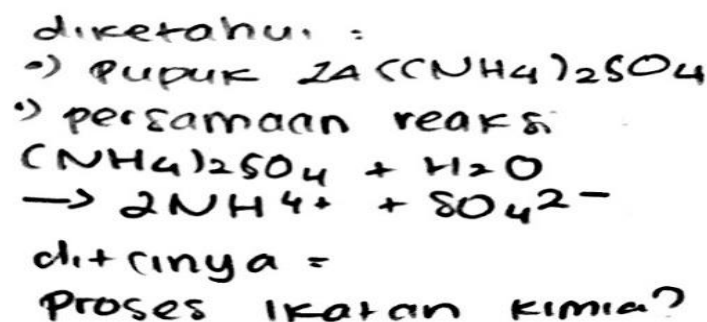 diketahui :
•) Pupuk ZA ((NH4)2SO4
•) persamaan reaksi
(NH4)2SO4 + H2O
—> 2NH4+ + SO42-
ditrinya =
Proses Ikatan kimia?